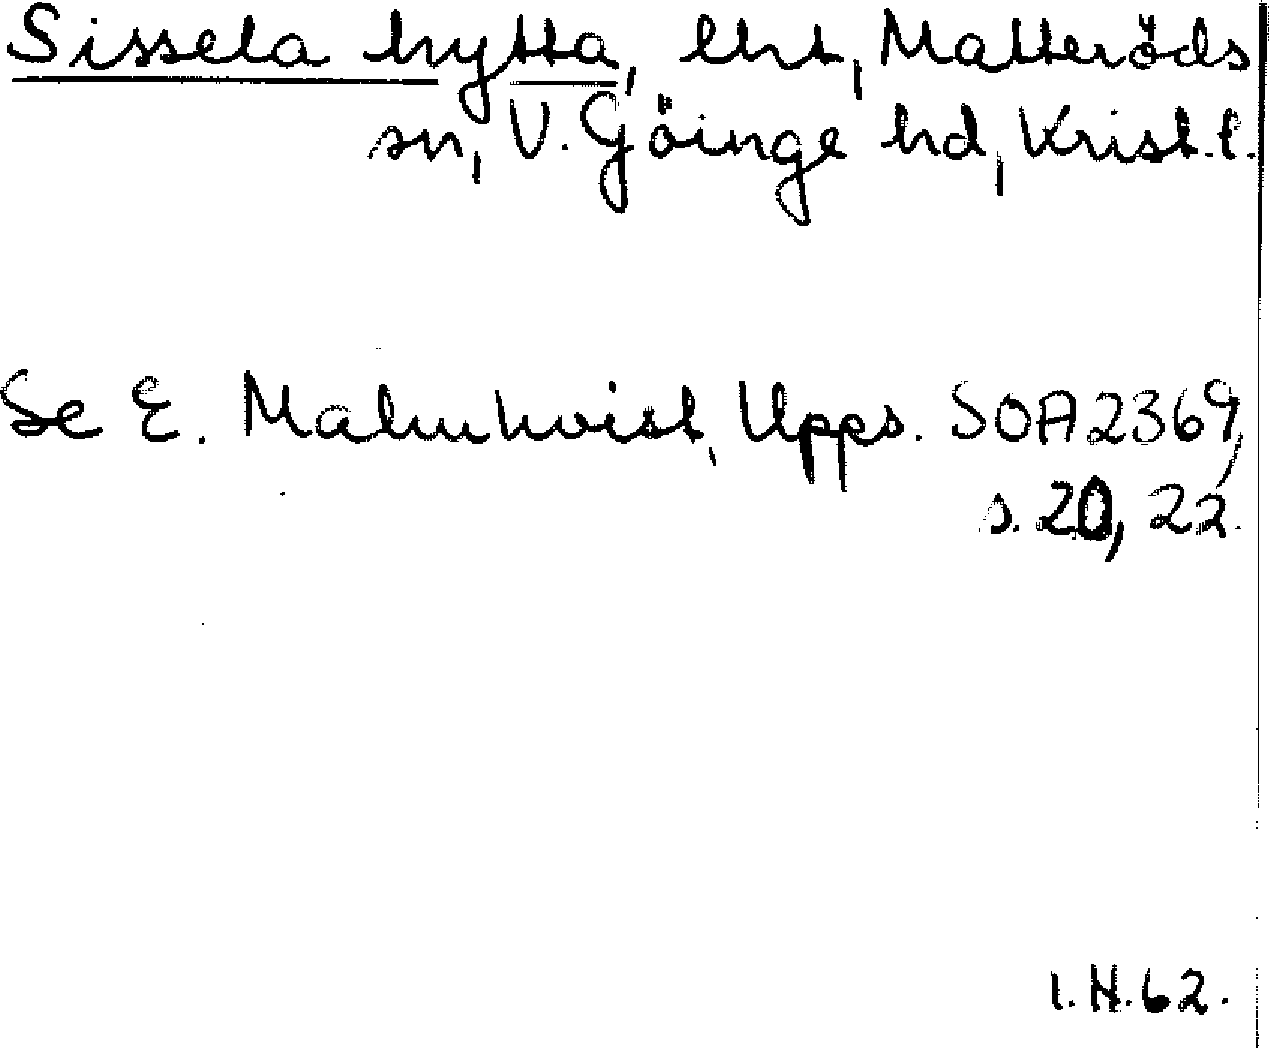 Sissela hytta, lht, Matteröds
sn, V. Göinge hd, Krist. l.
Se E. Malmkvist, Upps. SOA2369,
s. 20, 22.
I.H.62.